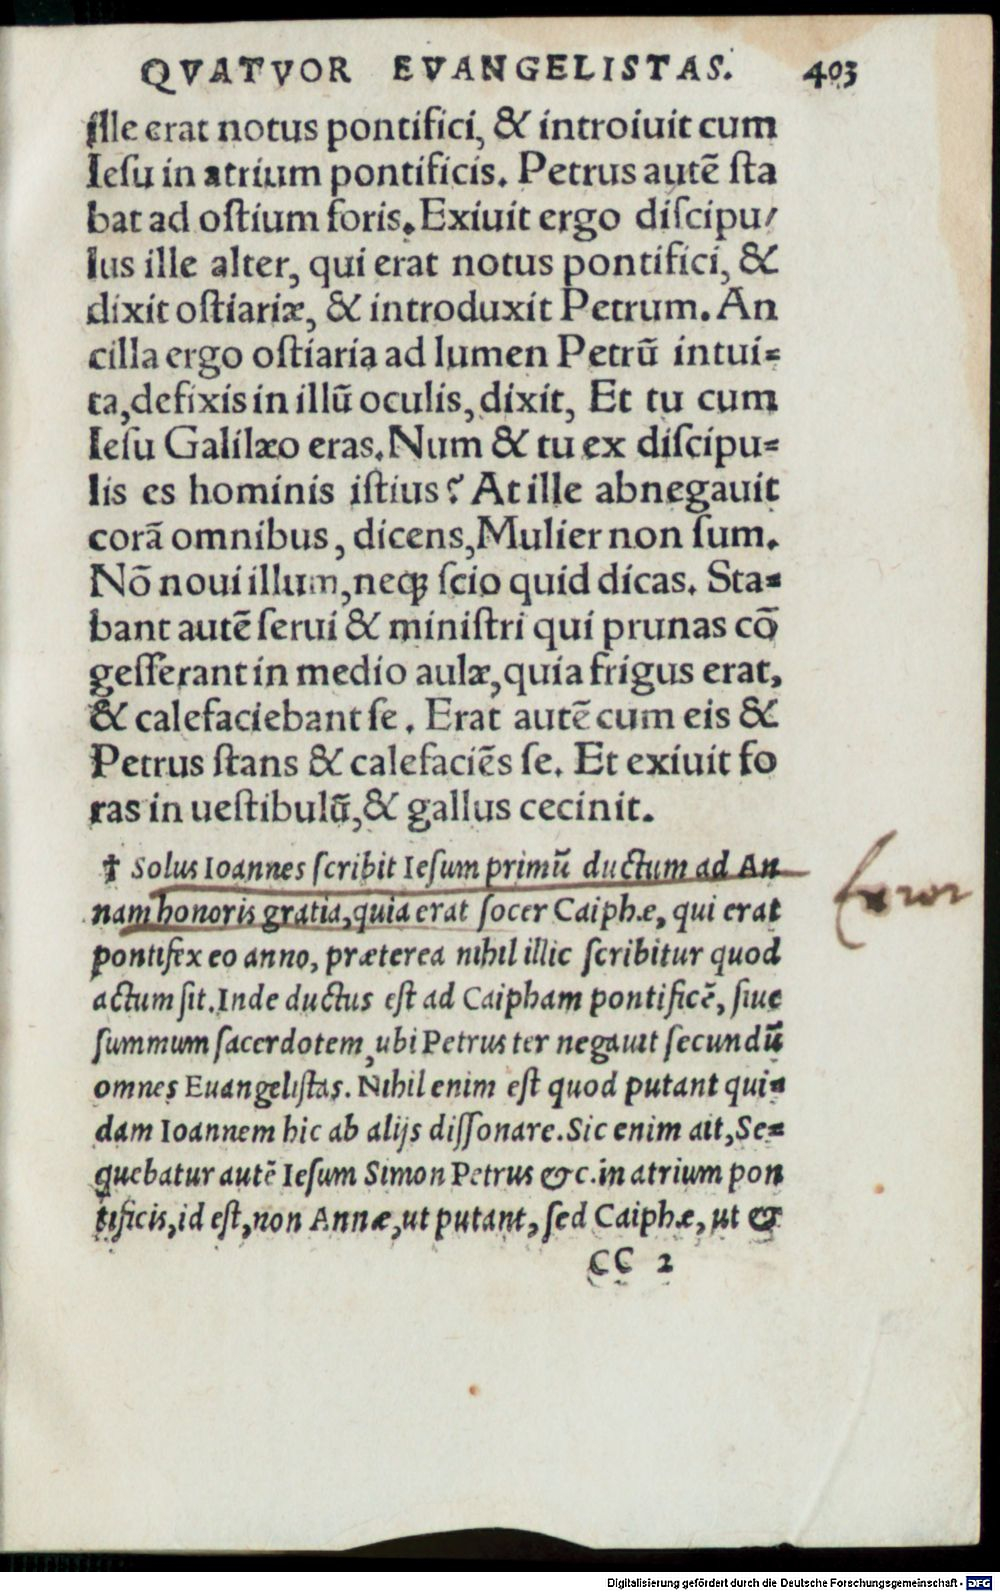 QVATVOR EVANGELISTAS. 403
ille erat notus pontifici, & introiuit cum
Iesu in atrium pontificis. Petrus autẽ sta
bat ad ostium foris. Exiuit ergo discipu/
lus ille alter, qui erat notus pontifici, &
dixit ostiariæ, & introduxit Petrum. An
cilla ergo ostiaria ad lumen Petrũ intui-
ta, defixis in illũ oculis, dixit, Et tu cum
Iesu Galilæo eras. Num & tu ex discipu-
lis es hominis istius? At ille abnegauit
corã omnibus, dicens, Mulier non sum.
Nõ noui illum, neq; scio quid dicas. Sta-
bant autẽ serui & ministri qui prunas cõ
gesserant in medio aulæ, quia frigus erat,
& calefaciebant se. Erat autẽ cum eis &
Petrus stans & calefaciẽs se. Et exiuit fo
ras in uestibulũ, & gallus cecinit.
† Solus Ioannes scribit Iesum primũ ductum ad An
nam honoris gratia, quia erat socer Caiphæ, qui erat
Error
pontifex eo anno, præterea nihil illic scribitur quod
actum sit. Inde ductus est ad Caipham pontificẽ, siue
summum sacerdotem, ubi Petrus ter negauit secundũ
omnes Euangelistas. Nihil enim est quod putant qui-
dam Ioannem hic ab alijs dissonare. Sic enim ait, Se-
quebatur autẽ Iesum Simon Petrus &c. in atrium pon
tificis, id est, non Annæ, ut putant, sed Caiphæ, ut &
CC 2
Digitalisierung gefördert durch die Deutsche Forschungsgemeinschaft - DFG